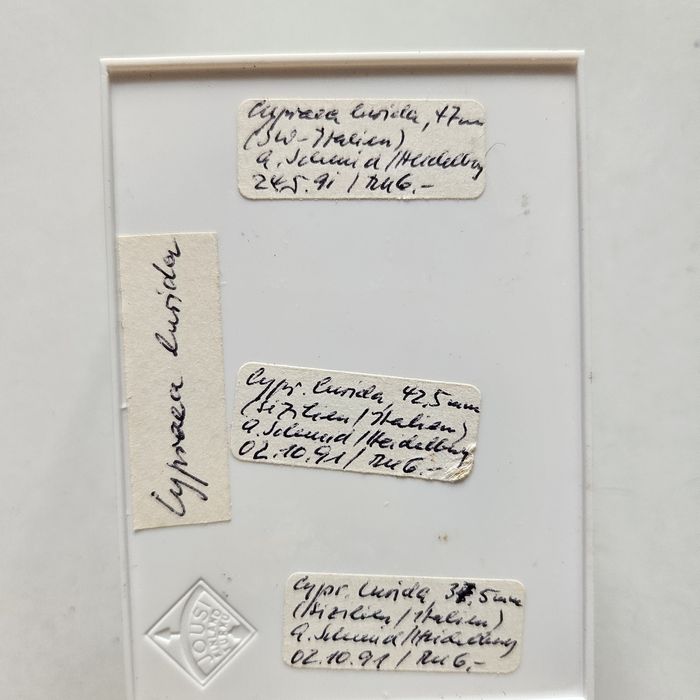 Cypraea lurida, 47 mm
(SW-Italien)
A. Schmid/Heidelberg
24.5.91 / DM 6.-
Cypraea lurida
Cypr. lurida, 42,5 mm
(Sizilien/Italien)
A. Schmid/Heidelberg
02.10.91 / DM 6.-
Cypr. lurida, 37,5 mm
(Sizilien/Italien)
A. Schmid/Heidelberg
02.10.91 / DM 6,-